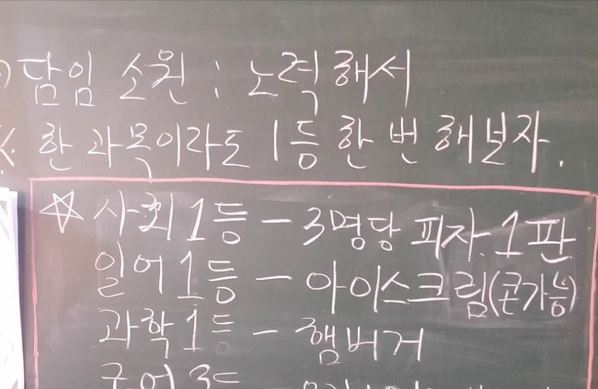 담임 소원 : 노력해서
※ 한 과목이라도 1등 한 번 해보자.
☆ 사회 1등 - 3명당 피자 1판
일어 1등 - 아이스크림(콘가능)
과학 1등 - 햄버거
국어 3등 -